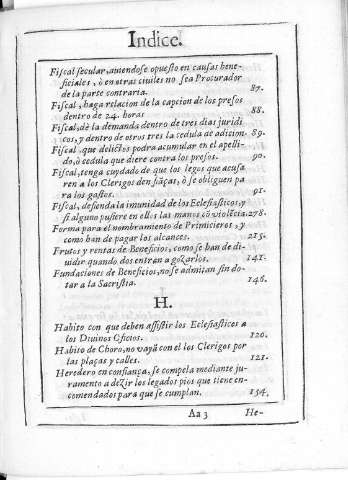 Indice.
Fiſcal ſecular, auiendoſe opueſto en cauſas bene-
ficiales, ò en otras ciuiles no ſea Procurador
de la parte contraria. 87.
Fiſcal, haga relacion de la capcion de los preſos
dentro de 24. horas 88.
Fiſcal, dè la demanda dentro de tres dias juridi
cos, y dentro de otros tres la cedula de adicion. 89.
Fiſcal, que delictos podra acumular en el apelli-
do, ò cedula que diere contra los preſos. 90.
Fiſcal, tenga cuydado de que los legos que acuſa
ren a los Clerigos den fiãças, ò ſe obliguen pa
ra los gaſtos. 91.
Fiſcal, defienda la imunidad de los Eclesiaſticos, y
ſi alguno puſiere en ellos las manos cõ violẽcia. 278.
Forma para el nombramiento de Primicieros, y
como han de pagar los alcances. 215.
Frutos y rentas de Beneficios, como ſe han de di-
uidir quando dos entran a gozarlos. 141.
Fundaciones de Beneficios, no ſe admitan ſin do-
tar a la Sacriſtia. 146.
H.
Habito con que deben aſſiſtir los Eclesiaſticos a
los Diuinos Oficios. 120.
Habito de Choro, no vayã con el los Clerigos por
las plaças y calles. 121.
Heredero en confiança, ſe compela mediante ju-
ramento a dezir los legados pios que tiene en-
comendados para que ſe cumplan. 134.
Aa 3 He-